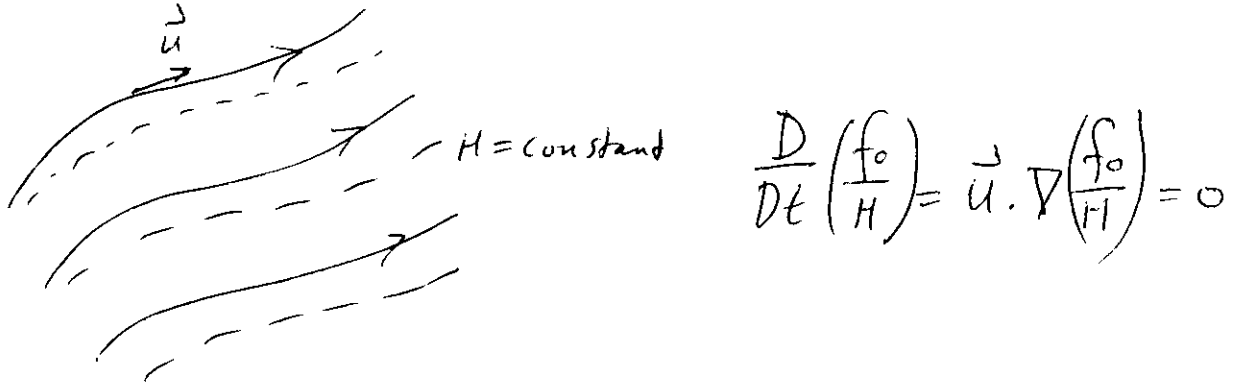 u⃗
H = constand
D/Dt (f₀/H) = u⃗ . ∇(f₀/H) = 0